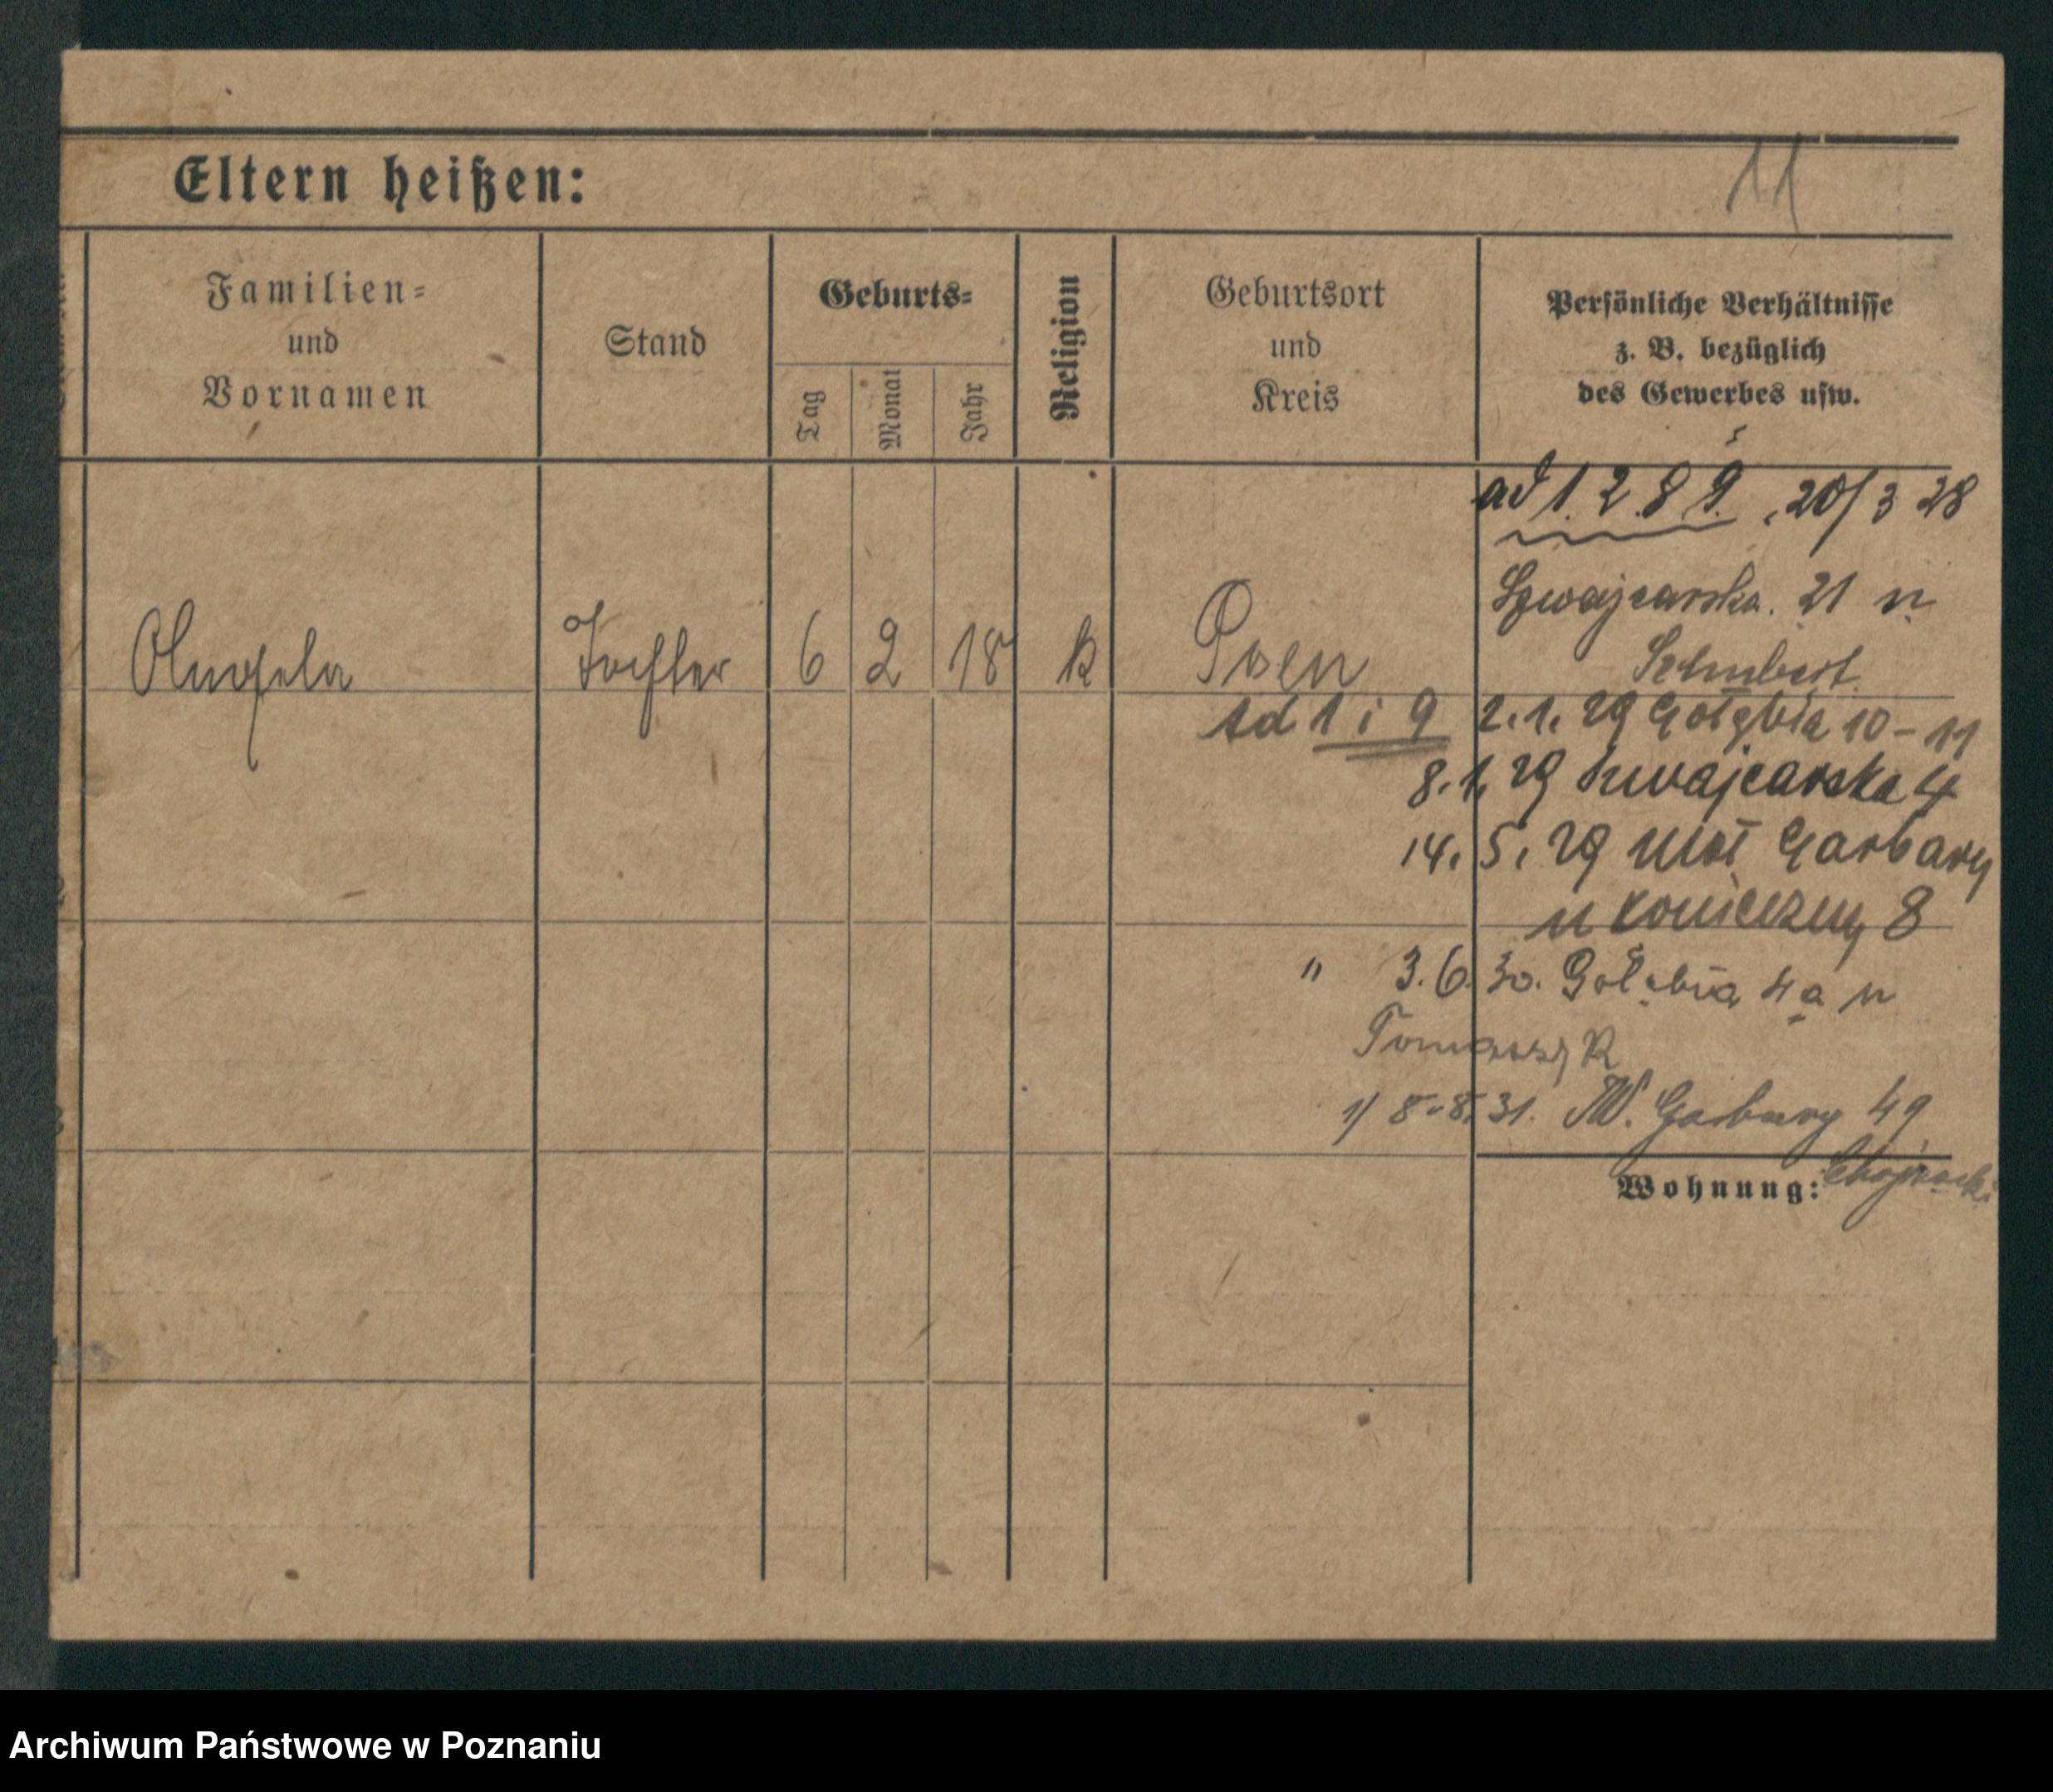 11
Eltern heißen:
Familien-
und
Vornamen
Stand
Geburts-
Tag
Monat
Jahr
Religion
Geburtsort
und
Kreis
Persönliche Verhältnisse
z. B. bezüglich
des Gewerbes usw.
ad 1. 2. 8 9. 20/3 28
Szwajcarska. 21 u.
Schubert.
Angela Tochter 6 2 18 k Posen
ad 1 i 9 2.1.29 Gołębia 10-11
8.1.29 Szwajcarska 4
14.5.29 Garbary
u 8
" 3.6.30. Gołębia 4a u
1) 8.8.31. W. Garbary 49
Wohnung:
Archiwum Państwowe w Poznaniu